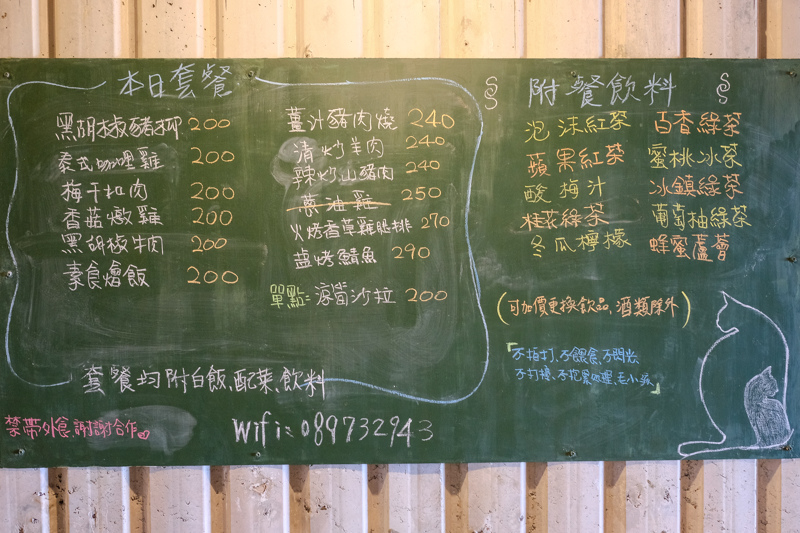 本日套餐
黑胡椒豬柳 200
泰式咖哩雞 200
梅干扣肉 200
香菇燉雞 200
黑胡椒牛肉 200
素食燴飯 200
薑汁豬肉燒 240
清炒羊肉 240
辣炒山豬肉 240
蔥油雞 250
火烤香草雞腿排 270
鹽烤鯖魚 290
單點: 涼筍沙拉 200
套餐均附白飯、配菜、飲料
附餐飲料
泡沫紅茶 百香綠茶
蘋果紅茶 蜜桃冰茶
酸梅汁 冰鎮綠茶
桂花綠茶 葡萄柚綠茶
冬瓜檸檬 蜂蜜蘆薈
(可加價更換飲品、酒類除外)
「不拍打、不餵食、不閃光
不打擾、不抱緊處理、毛小孩」
禁帶外食謝謝合作
Wifi: 089732943